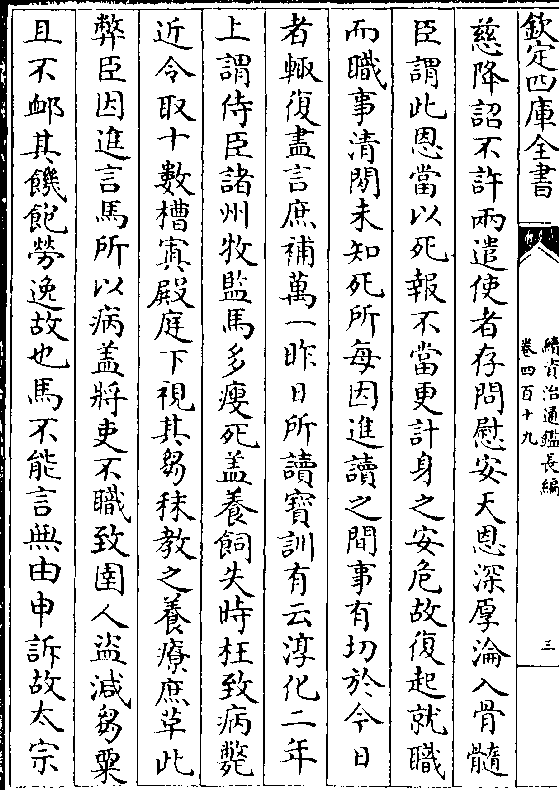 欽定四庫全書
續資治通鑑長編
卷四百十九
三
慈降詔不許兩遣使者存問慰安天恩深厚淪入骨髓
臣謂此恩當以死報不當更計身之安危故復起就職
而職事清閒未知死所每因進讀之間事有切於今日
者輙復盡言庶補萬一昨日所讀寳訓有云淳化二年
上謂侍臣諸州牧監馬多瘦死盖養飼失時枉致病斃
近令取十數槽寘殿庭下視其芻秣教之養療庶革此
弊臣因進言馬所以病盖將吏不職致圉人盗減芻粟
且不䘏其饑飽勞逸故也馬不能言無由申訴故太宗